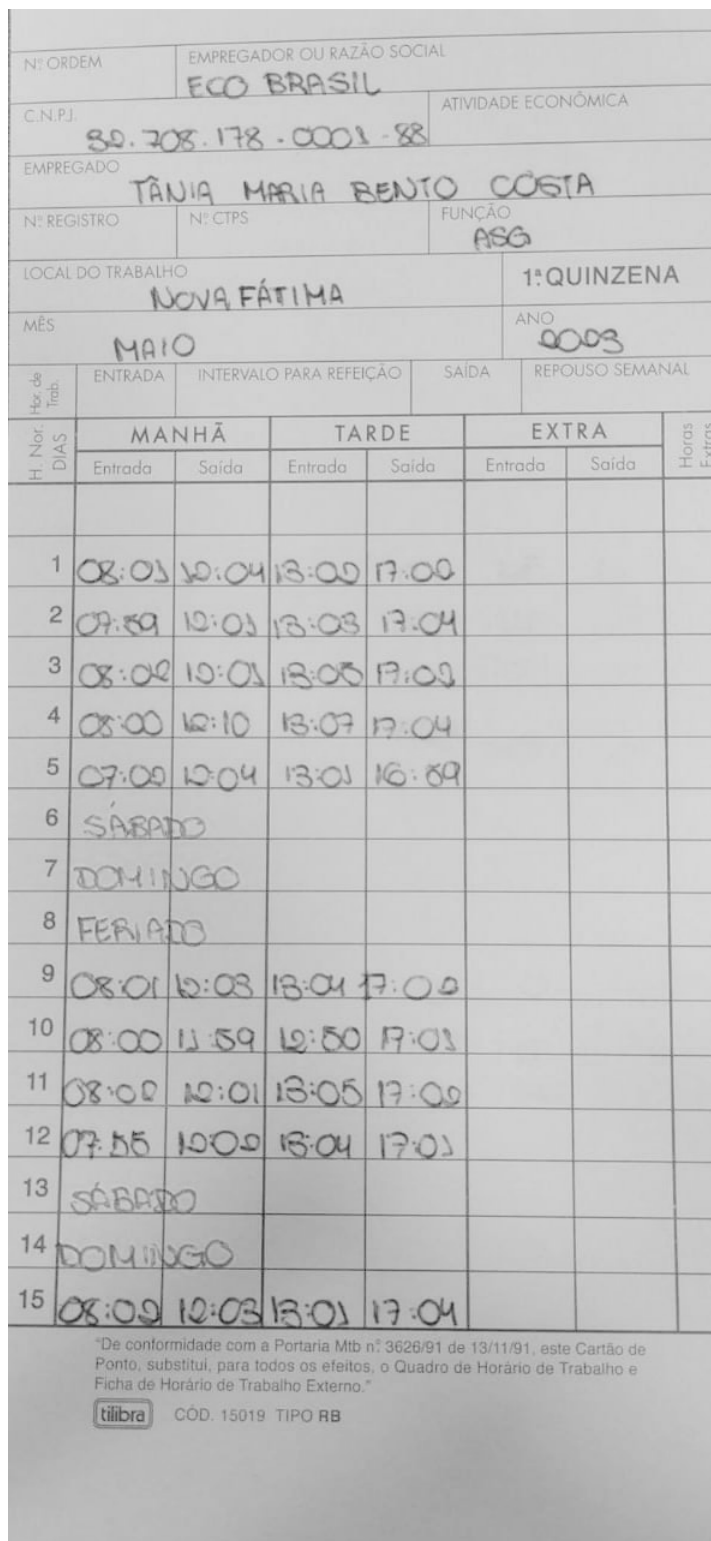 Nº ORDEM EMPREGADOR OU RAZÃO SOCIAL
ECO BRASIL
C.N.P.J. ATIVIDADE ECONÔMICA
32.708.178.0001-88
EMPREGADO
TÂNIA MARIA BENTO COSTA
Nº REGISTRO Nº CTPS FUNÇÃO
ASG
LOCAL DO TRABALHO 1ª QUINZENA
NOVA FÁTIMA
MÊS ANO
MAIO 2023
Hor. de Trab. ENTRADA INTERVALO PARA REFEIÇÃO SAÍDA REPOUSO SEMANAL
H. Nor. DIAS MANHÃ TARDE EXTRA Horas Extras
Entrada Saída Entrada Saída Entrada Saída
1 08:01 12:04 13:02 17:02
2 07:59 12:01 13:03 17:04
3 08:02 12:01 13:05 17:02
4 08:00 12:10 13:07 17:04
5 07:02 12:04 13:01 16:59
6 SÁBADO
7 DOMINGO
8 FERIADO
9 08:01 12:03 13:04 17:02
10 08:00 11:59 12:50 17:01
11 08:02 12:01 13:05 17:02
12 07:55 12:02 13:04 17:01
13 SÁBADO
14 DOMINGO
15 08:02 12:03 13:01 17:04
"De conformidade com a Portaria Mtb nº 3626/91 de 13/11/91, este Cartão de
Ponto, substitui, para todos os efeitos, o Quadro de Horário de Trabalho e
Ficha de Horário de Trabalho Externo."
tilibra CÓD. 15019 TIPO RB